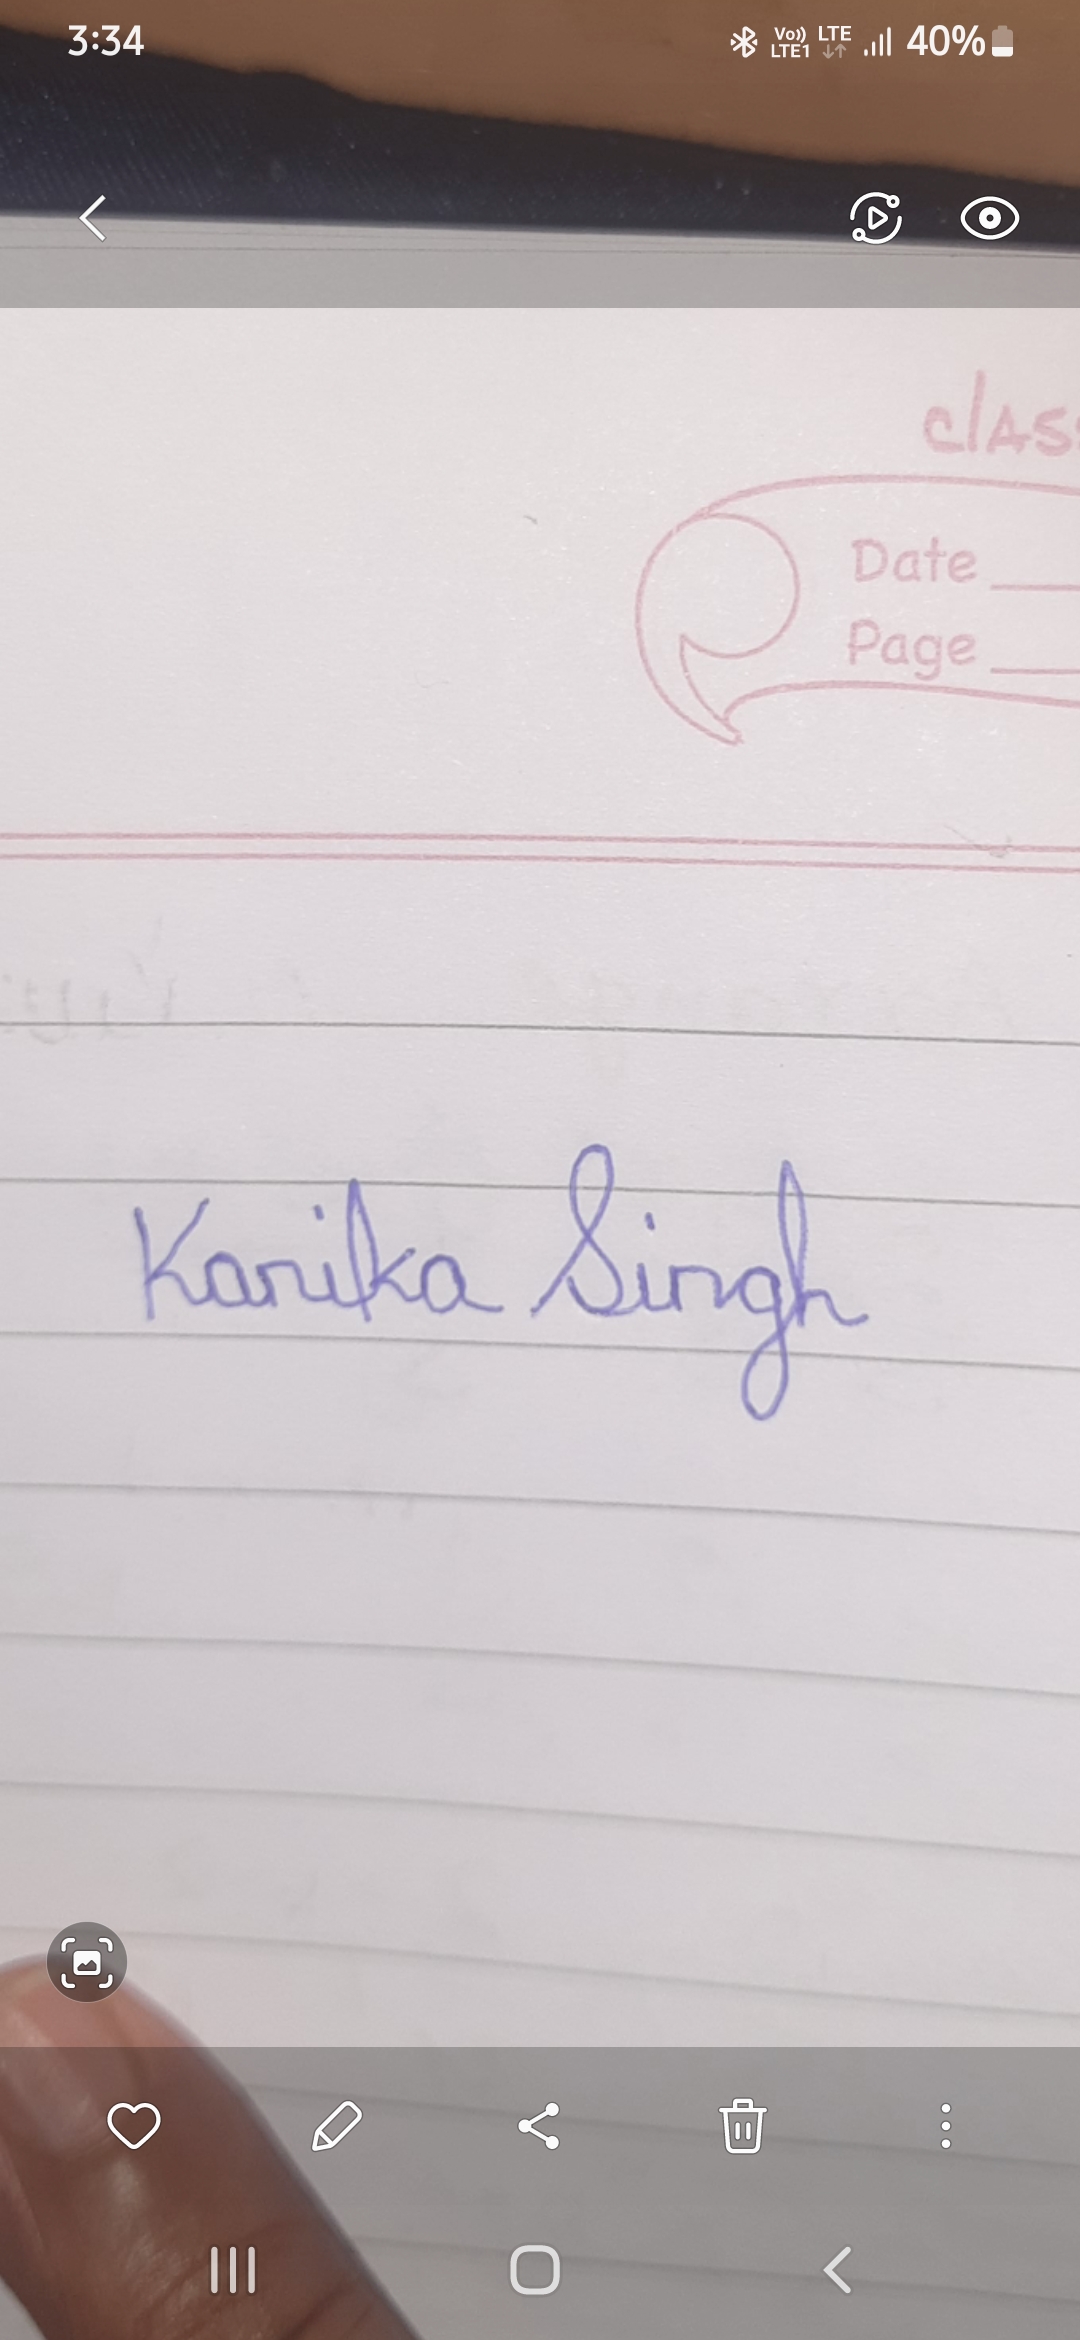 3:34 Vo)) LTE1 LTE 40%
Date
Page
Kanika Singh